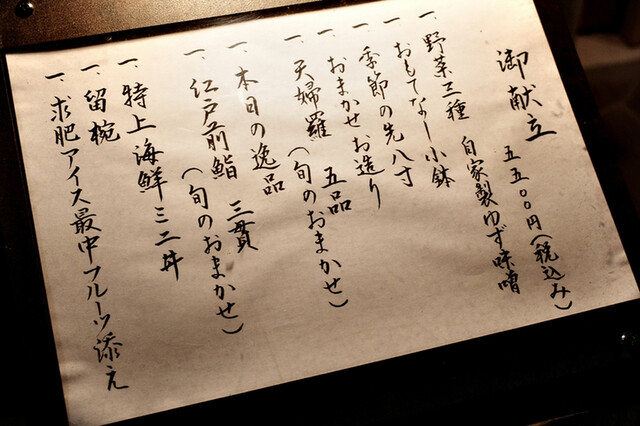 御献立 五五〇〇円(税込み)
一、野菜三種 自家製ゆず味噌
一、おもてなし小鉢
一、季節の先八寸
一、おまかせお造り
一、天婦羅 五品(旬のおまかせ)
一、本日の逸品
一、江戸前鮨 三貫(旬のおまかせ)
一、特上海鮮ミニ丼
一、留椀
一、求肥アイス最中フルーツ添え